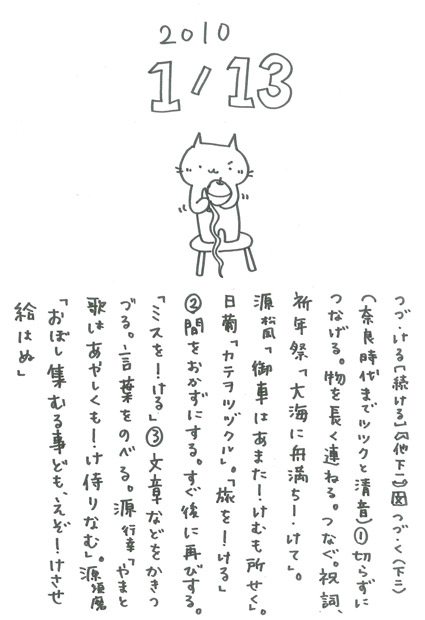 2010
1/13
つづ・ける【続ける】《他下一》図つづ・く(下二)
(奈良時代までツツクと清音)①切らずに
つなげる。物を長く連ねる。つなぐ。祝詞、
祈年祭「大海に舟満ち―・けて」。
源松風「御車はあまた―・けむも所せく」。
日葡「カテヲツヅクル」。「旅を―・ける」
②間をおかずにする。すぐ後に再びする。
「ミスを―・ける」③文章などをかきつ
づる。言葉をのべる。源行幸「やまと
歌はあやしくも―・け侍りなむ」。源須磨
「おぼし集むる事ども、えぞ―・けさせ
給はぬ」